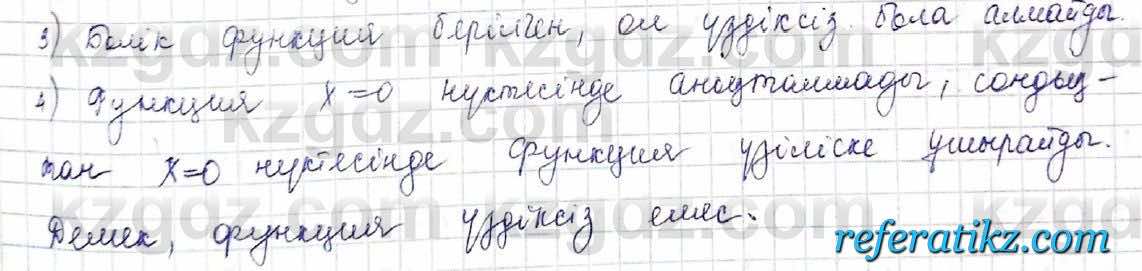 3) Бөлік функция берілген, ол үздіксіз бола алмайды.
4) Функция x=0 нүктесінде анықталмады, сондық-
тан x=0 нүктесінде функция үзіліске ұшырайды.
Демек, функция үздіксіз емес.
kzgdz.com
referatikz.com